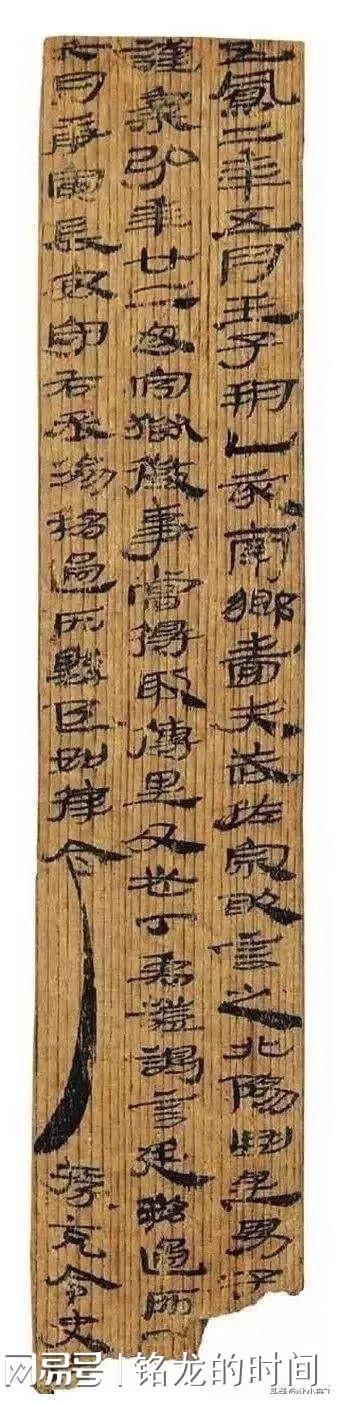 五鳳二年五月壬子朔乙亥南鄉嗇夫武佐宗敢言之北陽曲里男子
謹案弘年廿二毋官獄徵事當得取傳里父老丁禹證謁言廷移過所
六月庚寅長安守右丞湯移過所縣邑如律令 掾充令史
网易号 | 铭龙的时间